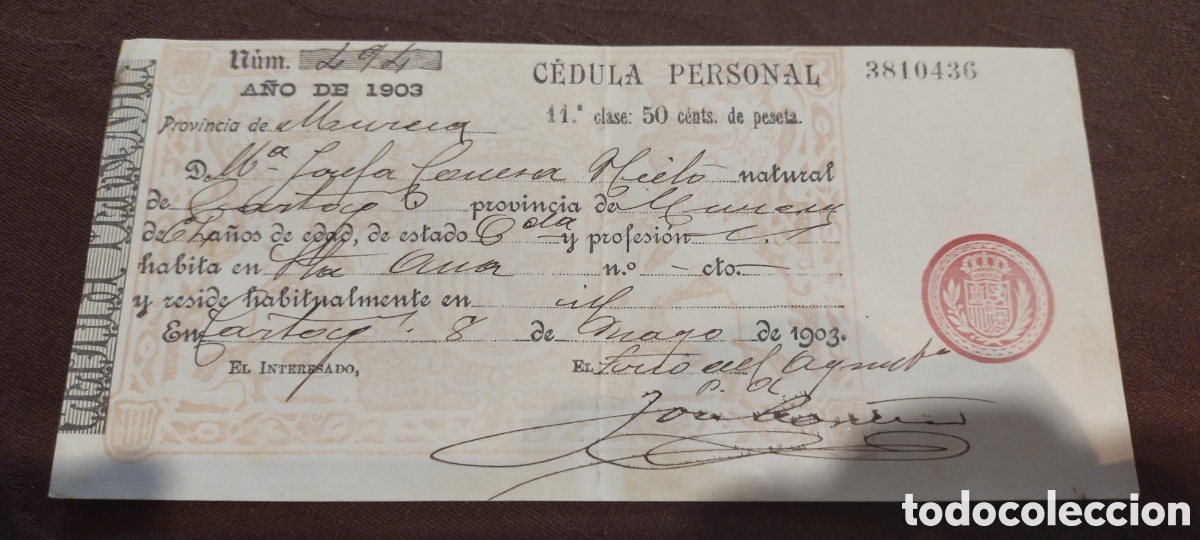 Núm. 494
AÑO DE 1903
CÉDULA PERSONAL 3810436
Provincia de Murcia
11.ª clase: 50 cénts. de peseta.
D. Mª Josefa Conesa Nieto natural
de Cartagª provincia de Murcia
de años de edad, de estado Cda y profesión
habita en Sta Ana n.º - cto. -
y reside habitualmente en id
En Cartagª 8 de Mayo de 1903.
EL INTERESADO,
EL
P. A.
José
todocoleccion